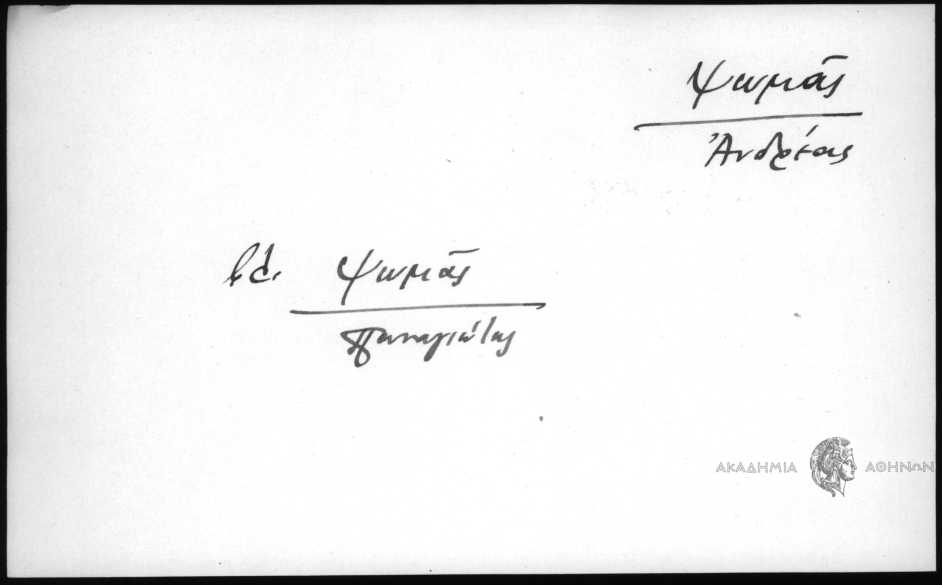 Ψωμᾶς
Ἀνδρέας
βλ. Ψωμᾶς
Παναγιώτης
ΑΚΑΔΗΜΙΑ ΑΘΗΝΩΝ